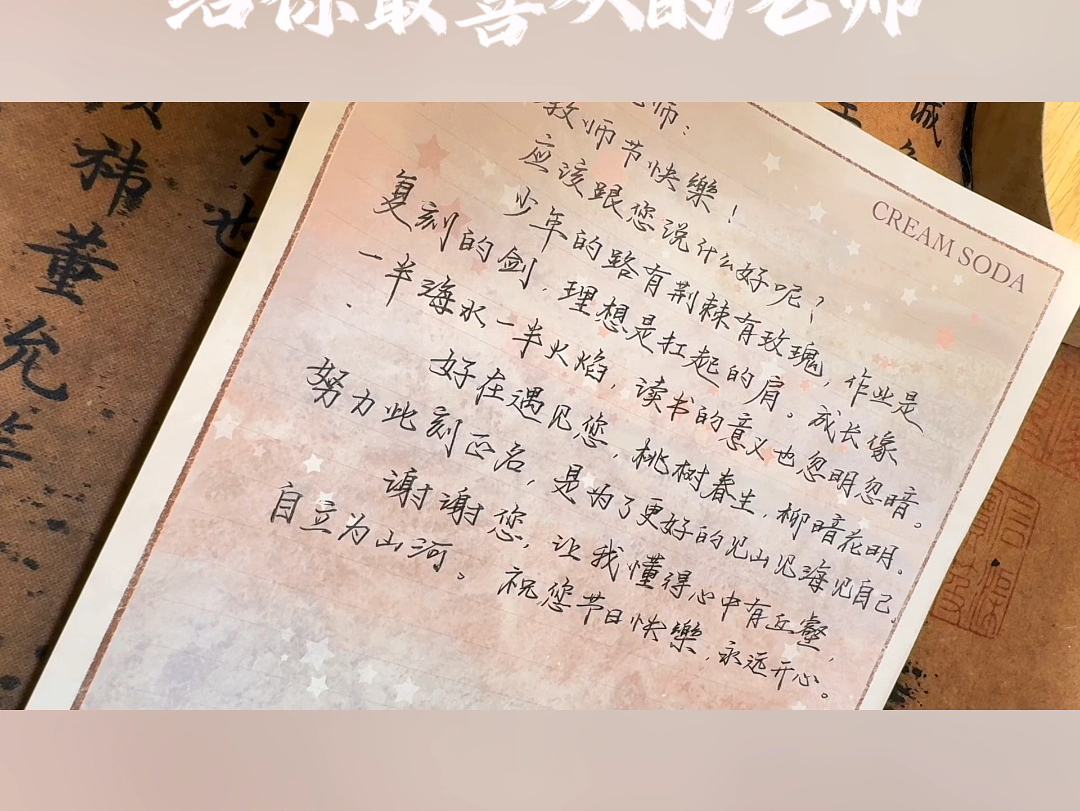 给你最喜欢的老师
老师：
教师节快樂！
应该跟您说什么好呢？
少年的路有荆棘有玫瑰，作业是
复刻的剑，理想是扛起的肩。成长像
一半海水一半火焰，读书的意义也忽明忽暗。
好在遇见您，桃树春生，柳暗花明。
努力此刻正名，是为了更好的见山见海见自己。
谢谢您，让我懂得心中有丘壑，
自立为山河。祝您节日快樂，永远开心。
CREAM SODA
祎
董
允
等
法
也
诚